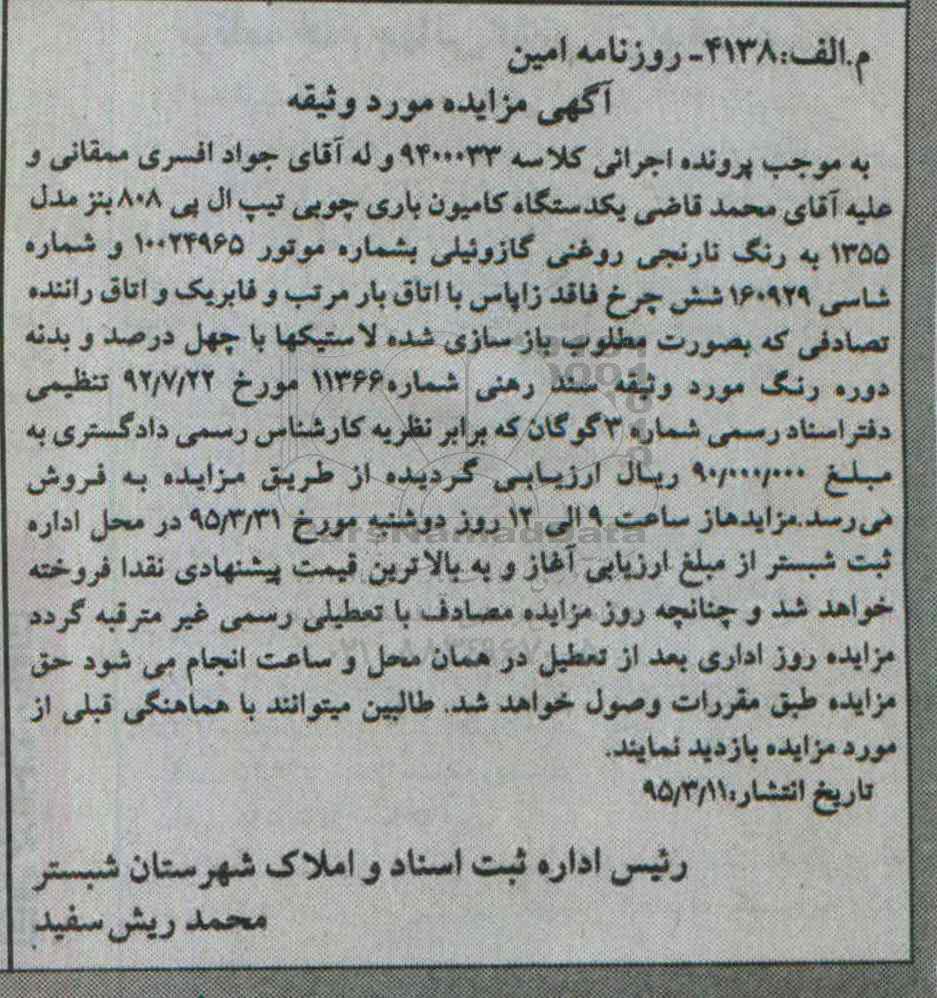 م.الف:۴۱۳۸- روزنامه امین
آگهی مزایده مورد وثیقه
به موجب پرونده اجرائی کلاسه ۹۴۰۰۰۳۳ و له آقای جواد افسری ممقانی و
علیه آقای محمد قاضی یکدستگاه کامیون باری چوبی تیپ ال پی ۸۰۸ بنز مدل
۱۳۵۵ به رنگ نارنجی روغنی گازوئیلی بشماره موتور ۱۰۰۲۴۹۶۵ و شماره
شاسی ۱۶۰۹۲۹ شش چرخ فاقد زاپاس با اتاق بار مرتب و فابریک و اتاق راننده
تصادفی که بصورت مطلوب باز سازی شده لاستیکها با چهل درصد و بدنه
دوره رنگ مورد وثیقه سند رهنی شماره۱۱۳۶۶ مورخ ۹۲/۷/۲۲ تنظیمی
دفتر اسناد رسمی شماره ۳ گوگان که برابر نظریه کارشناس رسمی دادگستری به
مبلغ ۹۰/۰۰۰/۰۰۰ ریال ارزیابی گردیده از طریق مزایده به فروش
می رسد.مزایدهاز ساعت ۹ الی ۱۲ روز دوشنبه مورخ ۹۵/۳/۳۱ در محل اداره
ثبت شبستر از مبلغ ارزیابی آغاز و به بالاترین قیمت پیشنهادی نقدا فروخته
خواهد شد و چنانچه روز مزایده مصادف با تعطیلی رسمی غیر مترقبه گردد
مزایده روز اداری بعد از تعطیل در همان محل و ساعت انجام می شود حق
مزایده طبق مقررات وصول خواهد شد. طالبین میتوانند با هماهنگی قبلی از
مورد مزایده بازدید نمایند.
تاریخ انتشار:۹۵/۳/۱۱
رئیس اداره ثبت اسناد و املاک شهرستان شبستر
محمد ریش سفید